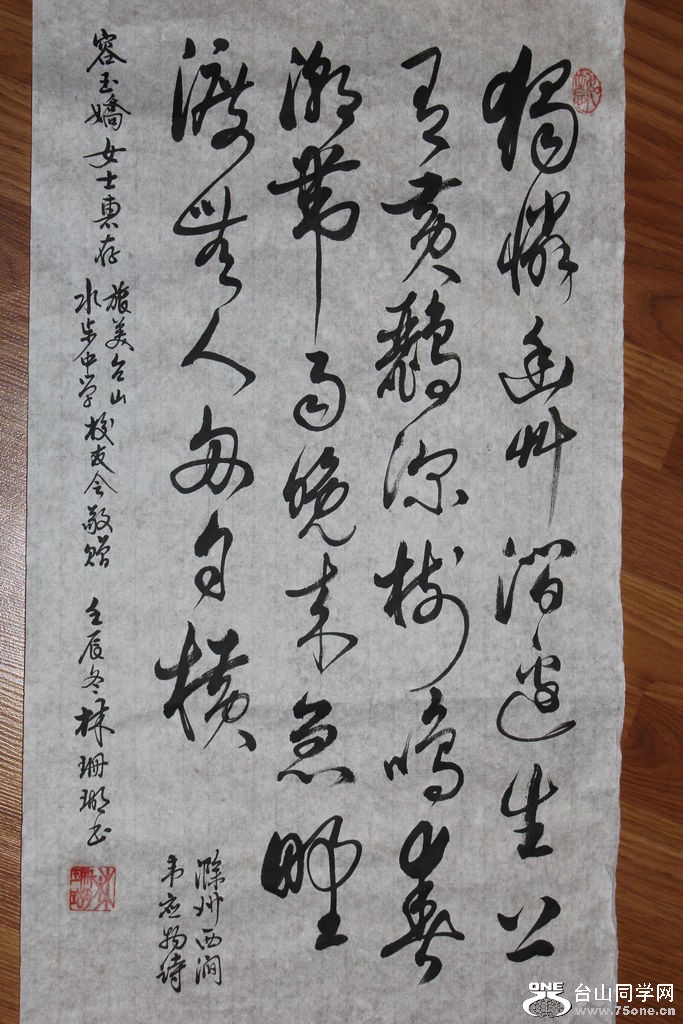 獨憐幽草澗邊生上
有黄鸝深樹鳴春
潮帶雨晚来急野
渡無人舟自横
滁州西澗
韋應物詩
容玉嬌女士惠存
旅美台山
水步中学校友会敬贈 壬辰冬 林珊瑚书
ONE 台山同学网
www.75one.cn